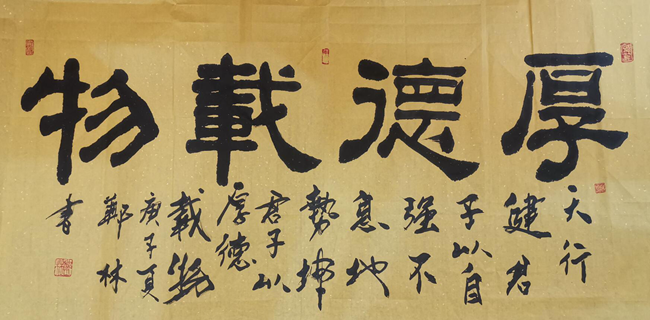 厚德載物
天行
健君
子以自
強不
息地
勢坤
君子以
厚德
載物
庚子夏
鄭林
書